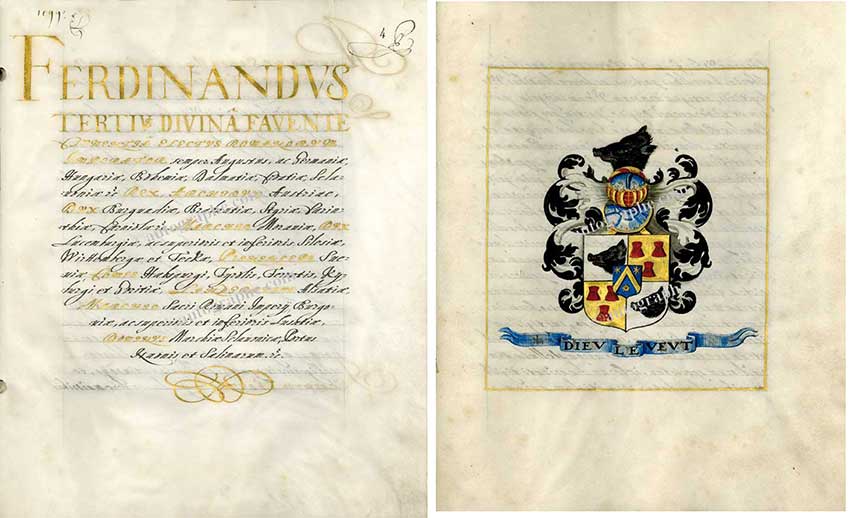 4
FERDINANDVS
TERTIVS DIVINÂ FAVENTE
CLEMENTIÂ ELECTVS ROMANORVM
IMPERATOR semper Augustus, ac Germaniæ,
Hungariæ, Bohemiæ, Dalmatiæ, Croatiæ, Scla-
voniæ &c REX ARCHIDVX Austriæ,
DVX Burgundiæ, Brabantiæ, Styriæ, Carin-
thiæ, Carniolæ &c MARCHIO Moraviæ, DVX
Luxemburgiæ, ac superioris et inferioris Silesiæ,
Wittembergæ et Teckæ, PRINCEPS Sue-
viæ COMES Habspurgi, Tyrolis, Ferretis, Ky-
burgi et Goritiæ, Alsatiæ,
MARCHIO Sacri Romani Imperij Burgo-
viæ, ac superioris et inferioris Lusatiæ,
DOMINVS Marchiæ Sclavonicæ, Portus
Naonis et Salinarum &c.
DIEV LE VEVT